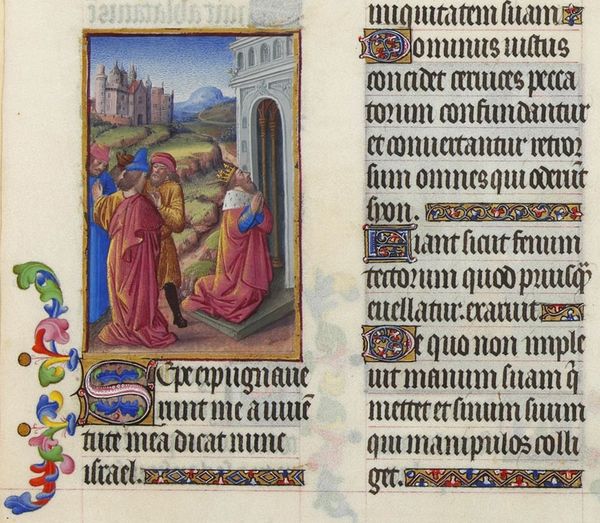 Sepe expugnaue
runt me a iuuē
tute mea dicat nunc
israel.
iniquitatem suam
Dominus iustus
concidet ceruices pecca
torum confundantur
et conuertantur retror
sum omnes qui oderūt
syon.
Fiant sicut fenum
tectorum quod priusq̄
euellatur. exaruit
De quo non imple
uit manum suam q̄
mettet et sinum suum
qui manipulos colli
get.